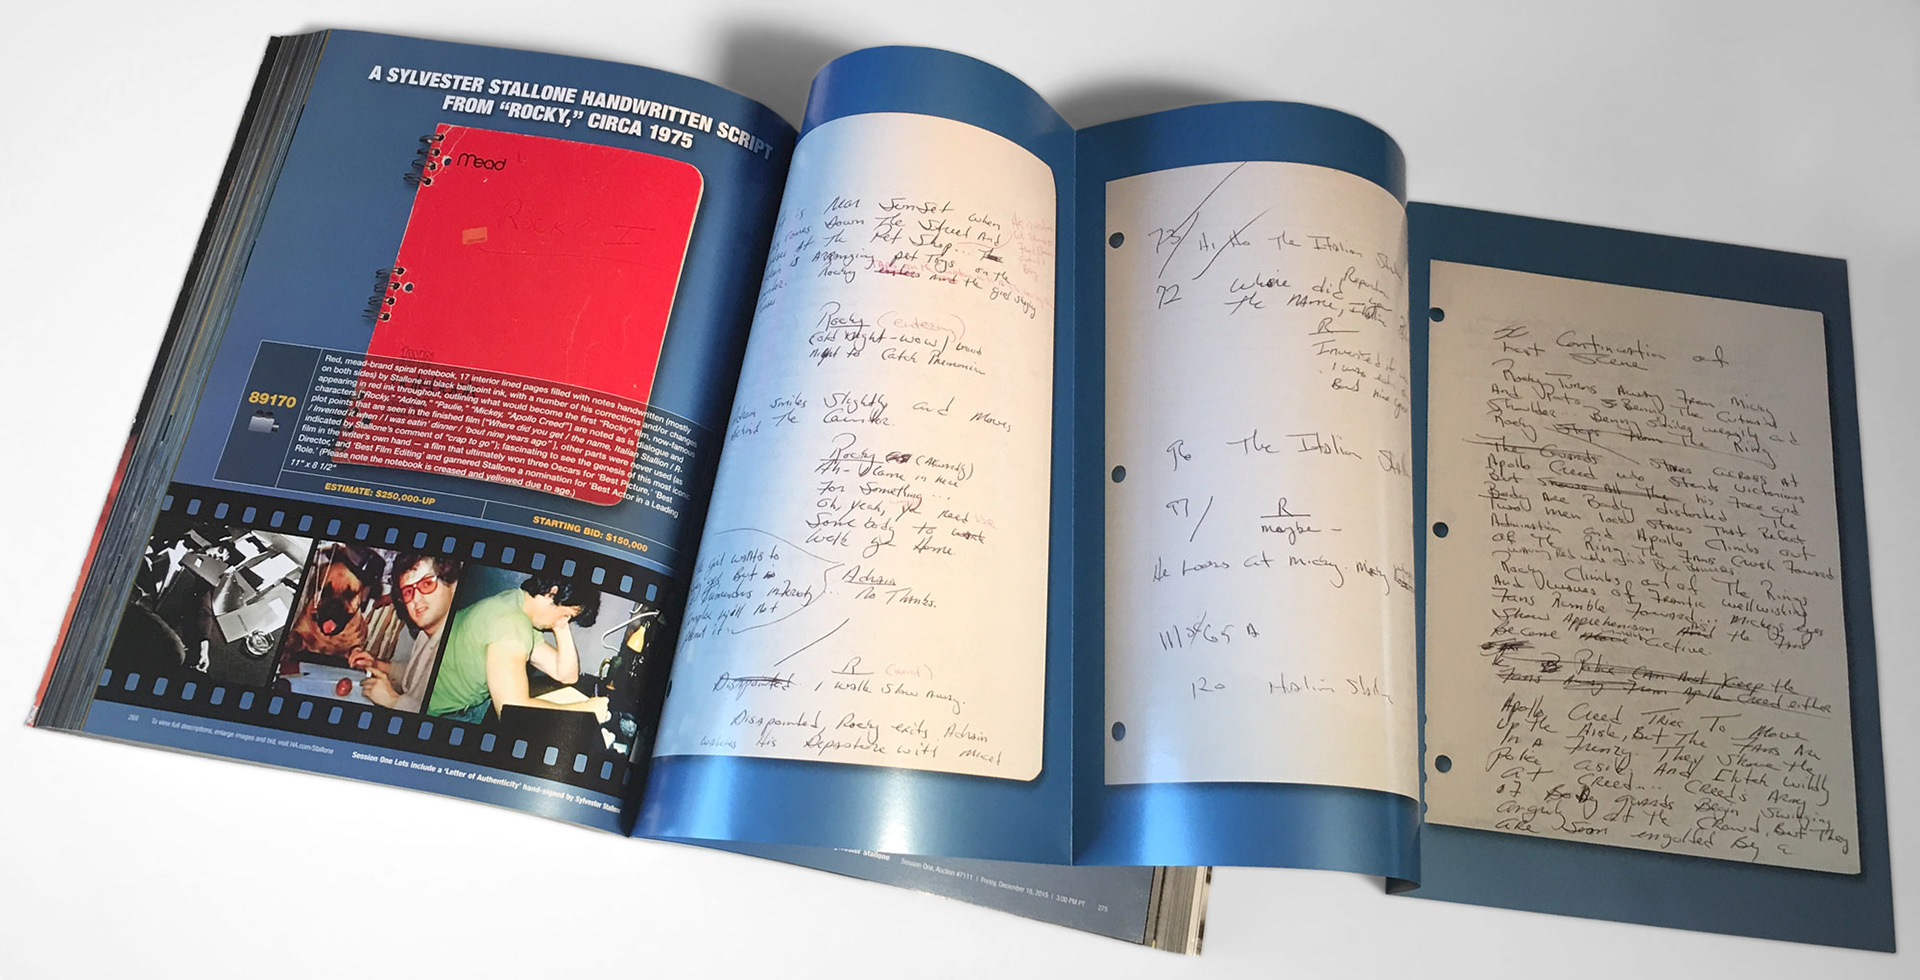 A SYLVESTER STALLONE HANDWRITTEN SCRIPT
FROM “ROCKY,” CIRCA 1975
Mead
Rocky I
89170
Red, mead-brand spiral notebook, 17 interior lined pages filled with notes handwritten (mostly
on both sides) by Stallone in black ballpoint ink, with a number of his corrections and/or changes
appearing in red ink throughout, outlining what would become the first “Rocky” film, now-famous
characters (“Rocky,” “Adrian,” “Paulie,” “Mickey, “Apollo Creed”) are noted as is dialogue and
plot points that are seen in the finished film (“Where did you get / the name, Italian Stallion / R-
/ Invented it when / I was eatin’ dinner / ’bout nine years ago”), other parts were never used (as
indicated by Stallone’s comment of “crap to go”); fascinating to see the genesis of this most iconic
film in the writer’s own hand – a film that ultimately won three Oscars for ‘Best Picture,’ ‘Best
Director,’ and ‘Best Film Editing’ and garnered Stallone a nomination for ‘Best Actor in a Leading
Role.’ (Please note the notebook is creased and yellowed due to age.)
11" x 8 1/2"
ESTIMATE: $250,000-UP
STARTING BID: $150,000
To view full descriptions, enlarge images and bid, visit HA.com/Stallone
Session One Lots include a ‘Letter of Authenticity’ hand-signed by Sylvester Stallone
is Near Sunset when
comes Down The Street And
At The Pet Shop...
is Arranging pet Toys on the
Rocky the girl
Rocky (entering)
Cold Night - wow, good
Night to Catch Pneumonia
smiles Slightly and Moves
behind The Counter.
Rocky
Ah - I Came in here
For Something...
Oh, yeah, ya need
Some body to
walk ya Home
girl wants to
But
interest
will Not
it.
Adrain
... No Thanks.
R
Disapointed I walk slow Anyway.
Disapointed, Rocky exits, Adrain
watches His Departure with Mixed
73/ Hi Ho The Italian
Reporter
72 Where did ya
the Name, Italian
R
Invented it
I was eatin
Bout nine years
96 The Italian
97/ R
maybe -
He Looks at Micky. Micky
120 Italian
Continuation of
Last Scene
Rocky Turns Away From Micky
And Puts Benny The Cutman
Shoulder.. Benny Smiles weakly and
Rocky Steps From The Ring
The Guards Stares across At
Apollo Creed who Stands Victorious
But his Face and
Body Are Badly distorted. The
Two Men lock Stares That Reflect
Admiration and Apollo Climbs out
of The Ring. The Fans Crush Forward
Rocky Climbs out of The Ring
And waves of Frantic wellwishing
Fans Rumble Forward... Mickey's eyes
Show Apprehension the Fans
become active.
Police Can Not Keep the
Fans Away From Apollo Creed either
Apollo Creed Tries To Move
Up the Aisle, But The Fans Are
In A Frenzy. They Shove the
Police aside, And Clutch wildly
at Creed.... Creed's Army
of Body guards Begin Swinging
angrily at the Crowd, But They
are Soon engulfed By a
Session One, Auction #7111 | Friday, December 18, 2015 | 3:00 PM PT
275